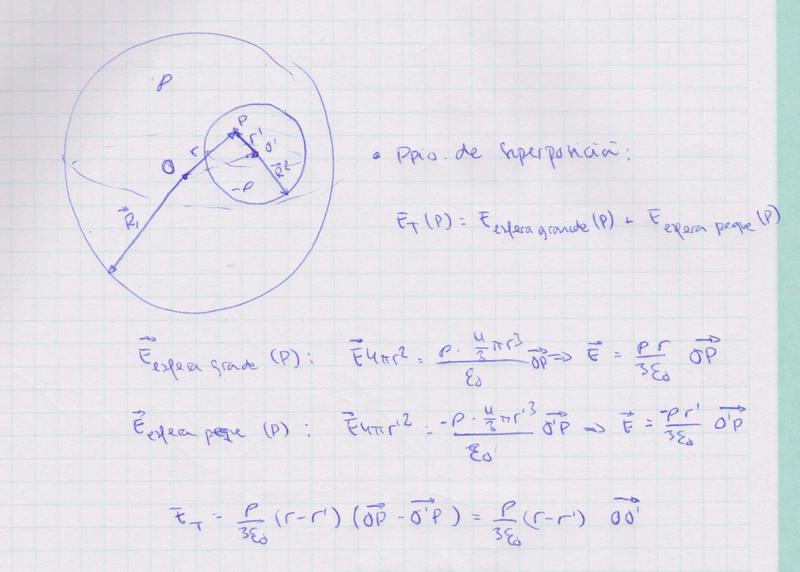 ρ
P
r
r'
O'
O
R⃗2
-ρ
R⃗₁
• Ppio. de Superposición:
E⃗_T (P) = E⃗ esfera grande (P) + E⃗ esfera peque (P)
E⃗ esfera grade (P): E⃗4πr² = ρ · 4/3 πr³ / ε₀ OP⃗ => E⃗ = ρ r / 3ε₀ OP⃗
E⃗ esfera peque (P): E⃗4πr'² = -ρ · 4/3 πr'³ / ε₀ O'P⃗ => E⃗ = -ρ r' / 3ε₀ O'P⃗
E⃗_T = ρ / 3ε₀ (r-r') (OP⃗ - O'P⃗) = ρ / 3ε₀ (r-r') OO'⃗